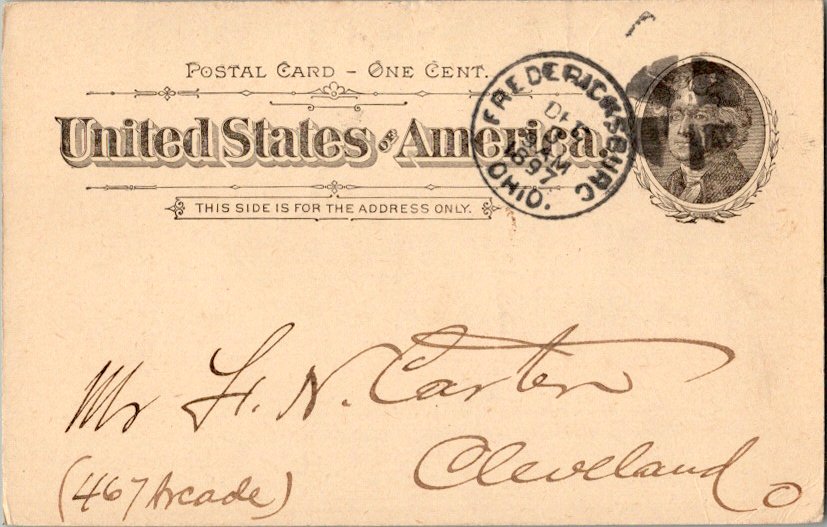 POSTAL CARD - ONE CENT.
United States of America.
THIS SIDE IS FOR THE ADDRESS ONLY.
FREDERICKSBURG
DEC
AM
1897
OHIO.
Mr H. N. Carter
Cleveland O
(467 Arcade)